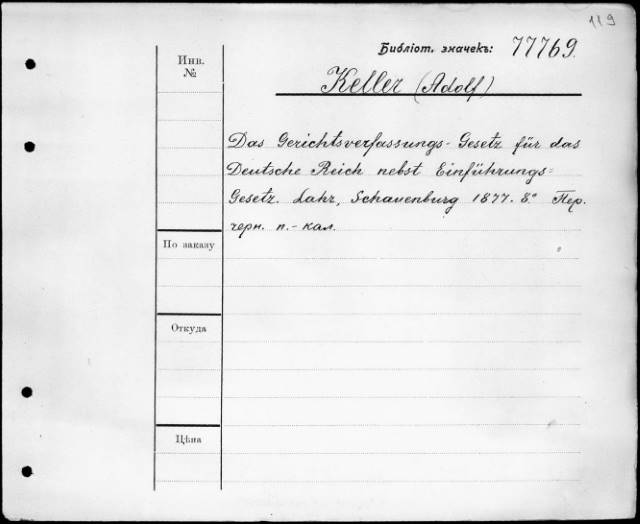 119
Инв.
№
Библіот. значекъ: 77769.
Keller (Adolf)
Das Gerichtsverfassungs-Gesetz für das
Deutsche Reich nebst Einführungs=
Gesetz. Lahr, Schauenburg 1877. 8.° Пер.
черн. п.-кал.
По заказу
Откуда
Цѣна